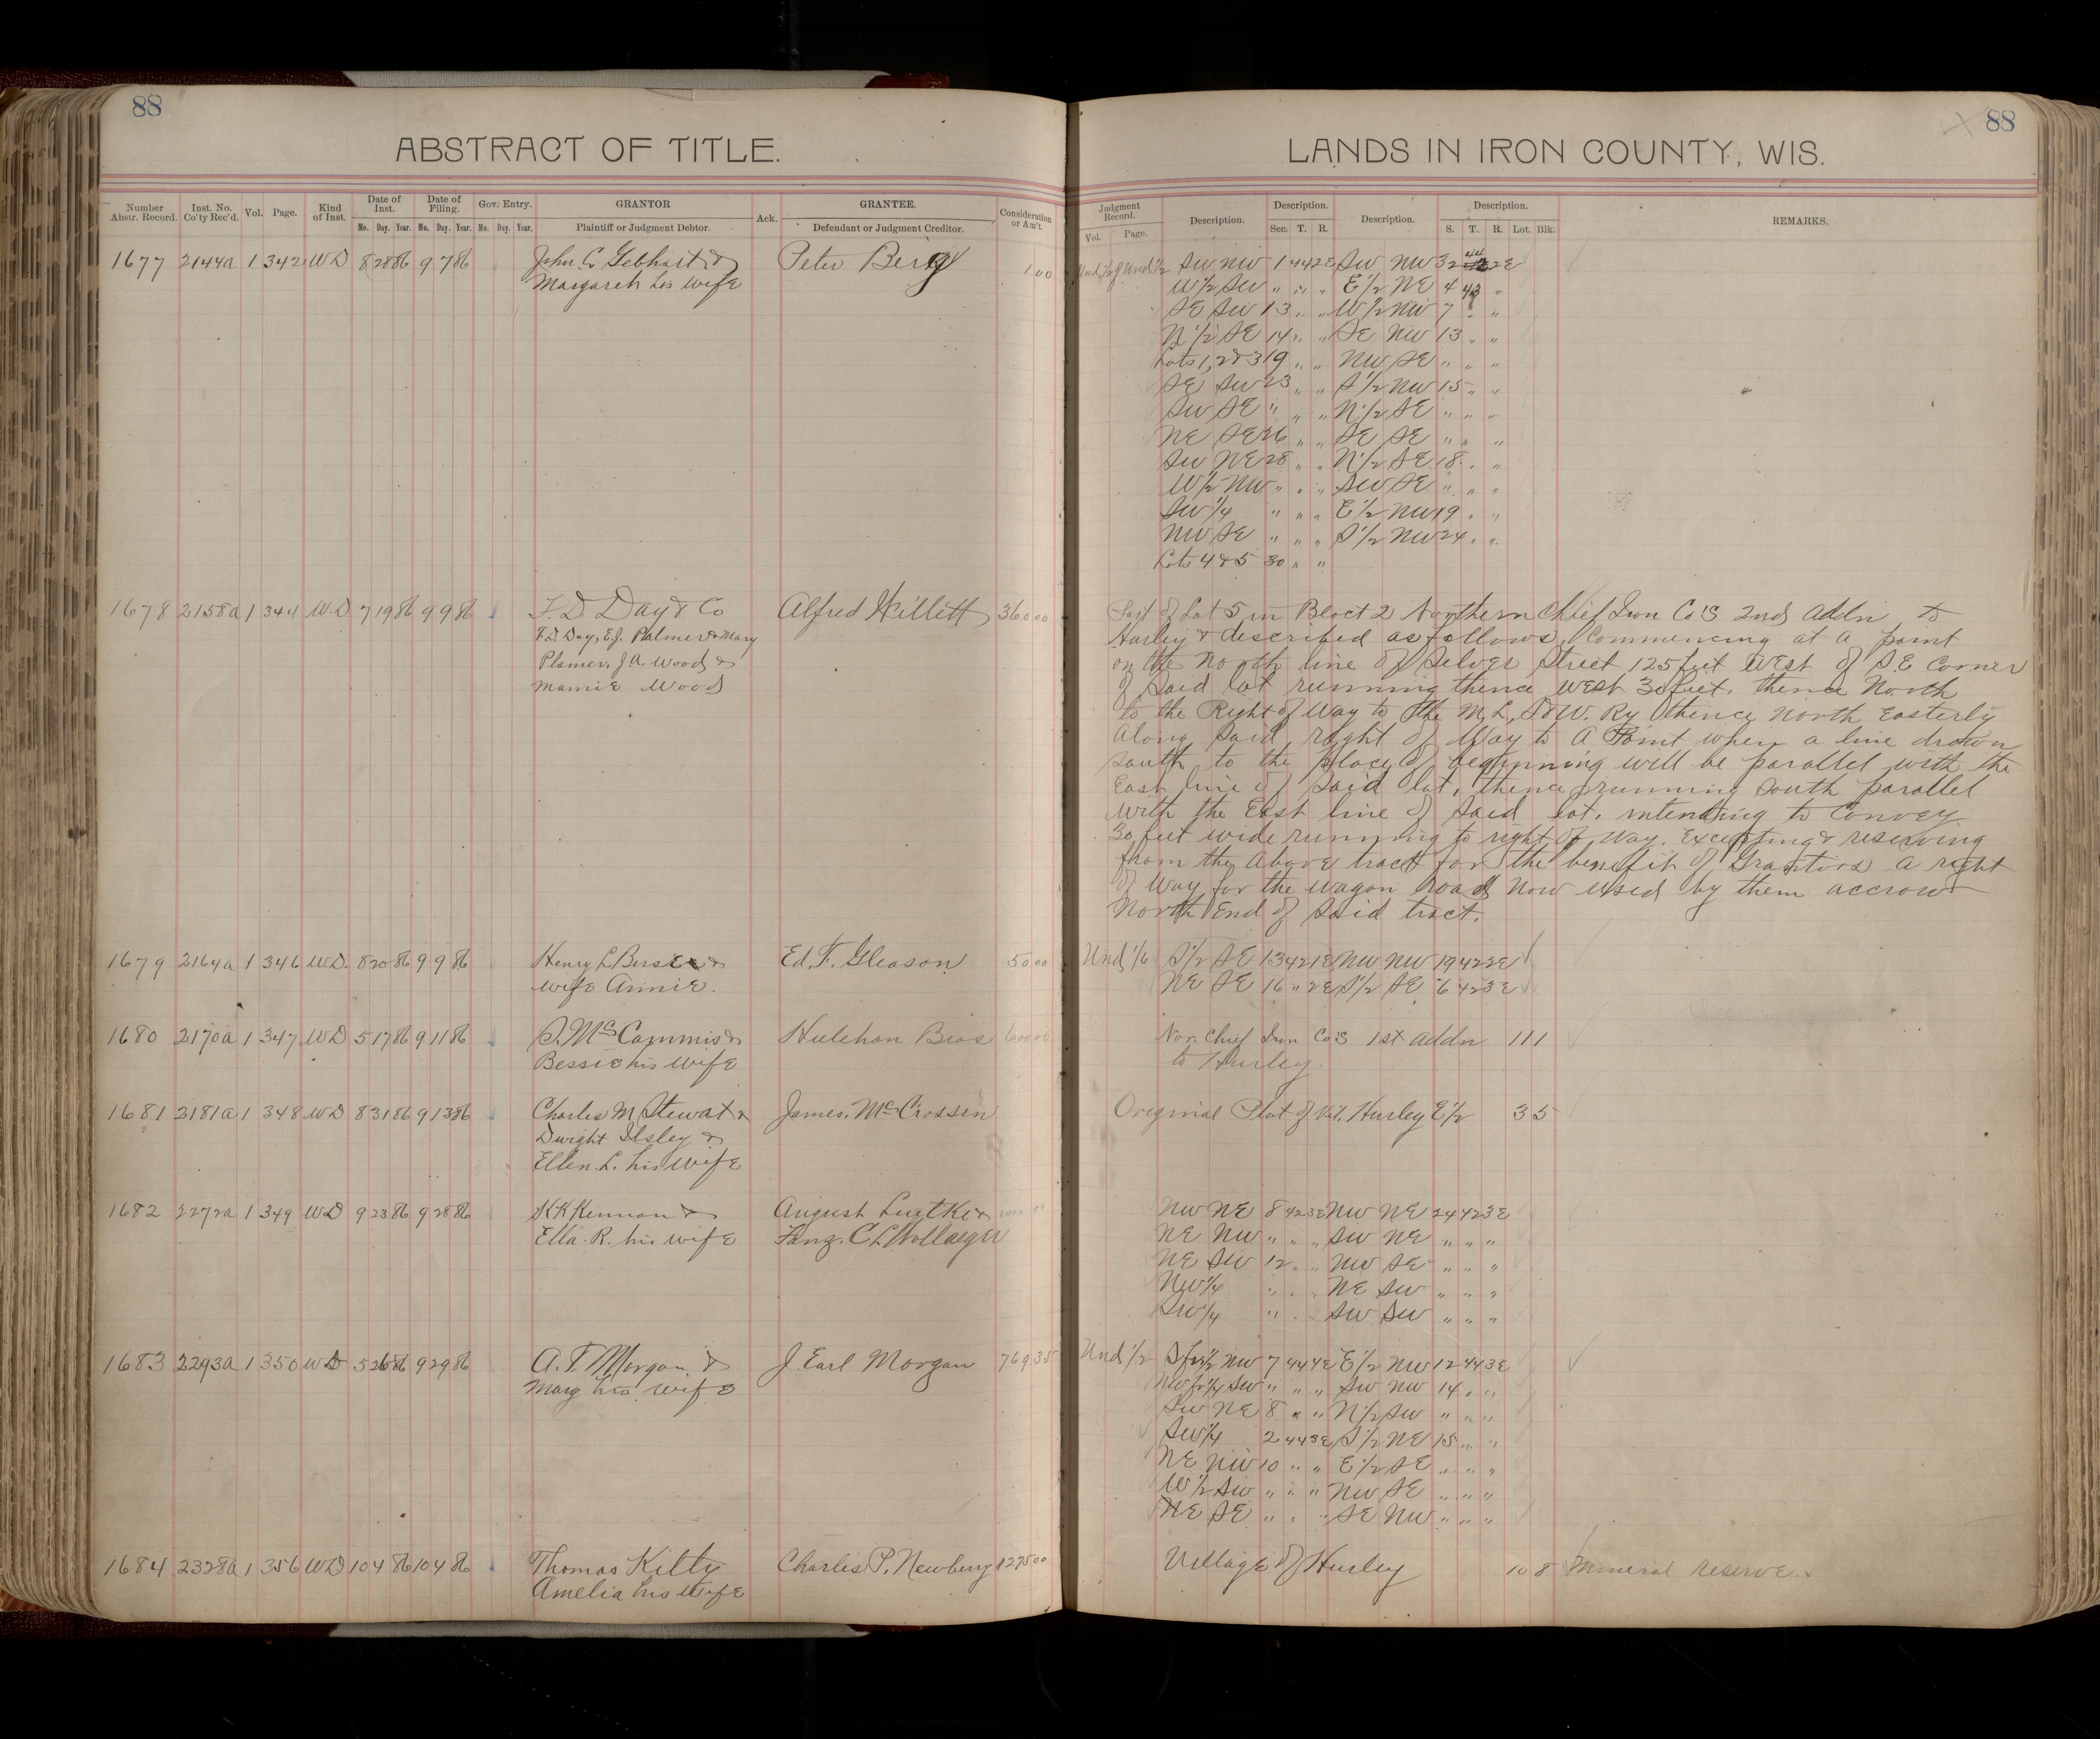 88
ABSTRACT OF TITLE.
Number Abstr. Record. Inst. No. Co'ty Rec'd. Vol. Page. Kind of Inst. Date of Inst. Date of Filing. Gov. Entry. GRANTOR Ack. GRANTEE. Consideration or Am't.
Mo. Day. Year. Mo. Day. Year. Mo. Day. Year. Plaintiff or Judgment Debtor. Defendant or Judgment Creditor.
1677 2144a 1 342 WD 8 28 86 9 7 86 John C Gebhart & Peter Berg 1 00
Margareth his wife
1678 2158a 1 344 W.D 7 19 86 9 9 86 F. D Day & Co Alfred Willett 360 00
F. D. Day, E.J. Palmer & Mary
Plamer, J. A. Wood &
Mamie Wood
1679 2164a 1 346 W.D. 8 20 86 9 9 86 Henry L Besse & Ed. F. Gleason 50 00
wife Annie.
1680 2170a 1 347 WD 5 17 86 9 11 86 S. McCammis & Hulehan Bros 600 00
Bessie his wife
1681 2181a 1 348 WD 8 31 86 9 13 86 Charles M Stewart & James McCrossen
Dwight Ilsley &
Ellen L. his wife
1682 2272a 1 349 WD 9 23 86 9 28 86 K K Kennan & August Luatke &
Ella R. his wife Fanz. C L Wollaeger
1683 2293a 1 350 WD 5 26 86 9 29 86 A. T. Morgan & J Earl Morgan 769 35
Mary his wife
1684 2328a 1 356 WD 10 4 86 10 4 86 Thomas Kilty Charles P. Newberry 1275 00
Amelia his wife
88
LANDS IN IRON COUNTY, WIS.
Judgment Record. Description. Description. Description. Description. REMARKS.
Vol. Page. Sec. T. R. S. T. R. Lot. Blk.
Und 1/2 of Und 1/2 SW NW 1 44 2E SW NW 32 44 2E
W 1/2 SW " " " E 1/2 NE 4 43 "
SE SW 13 " " W 1/2 NW 7 " "
N 1/2 SE 14 " " SE NW 13 " "
Lots 1, 2 & 3 19 " " NW SE " " "
SE SW 23 " " S 1/2 NW 15 " "
SW SE " " " N 1/2 SE " " "
NE SE 26 " " SE SE " " "
SW NE 28 " " N 1/2 SE 18 " "
W 1/2 NW " " " SW SE " " "
SW 1/4 " " " E 1/2 NW 19 " "
NW SE " " " S 1/2 NW 24 " "
Lots 4 & 5 30 " "
Part of Lot 5 in Block 2 Northern Chief Iron Co's 2nd Addn to
Hurley & described as follows, Commencing at a point
on the North line of Silver Street 125 feet West of S.E Corner
of Said lot running thence west 30 feet. thence North
to the Right of Way to the M, L, S & W. Ry thence North Easterly
Along Said right of Way to A Point when a line drawn
South to the place of beginning will be parallel with the
East line of Said lot, thence running South parallel
with the East line of Said lot. intending to Convey
30 feet wide running to right of way. Excepting & reserving
from the Above tract for the benefit of Grantors a right
of Way for the wagon road now used by them accross
North End of Said tract.
Und 1/6 S 1/2 SE 13 42 1E NW NW 19 42 2E
NE SE 16 " 2E S 1/2 SE 6 42 3E
Nor. Chief Iron Co's 1st Addn 1 11
to Hurley.
Original Plat of Vil. Hurley E 1/2 3 5
NW NE 8 42 3E NW NE 24 42 3E
NE NW " " " SW NE " " "
NE SW 12 " " NW SE " " "
NW 1/4 " " " NE SW " " "
SW 1/4 " " " SW SW " " "
Und 1/2 S fr 1/2 NW 7 44 4E E 1/2 NW 12 44 3E
NW fr 1/4 SW " " " SW NW 14 " "
SW NE 8 " " N 1/2 SW " " "
SW 1/4 2 44 3E S 1/2 NE 15 " "
NE NW 10 " " E 1/2 SE " " "
W 1/2 SW " " " NW SE " " "
NE SE " " " SE NW " " "
Village of Hurley 10 8 Mineral reserve.